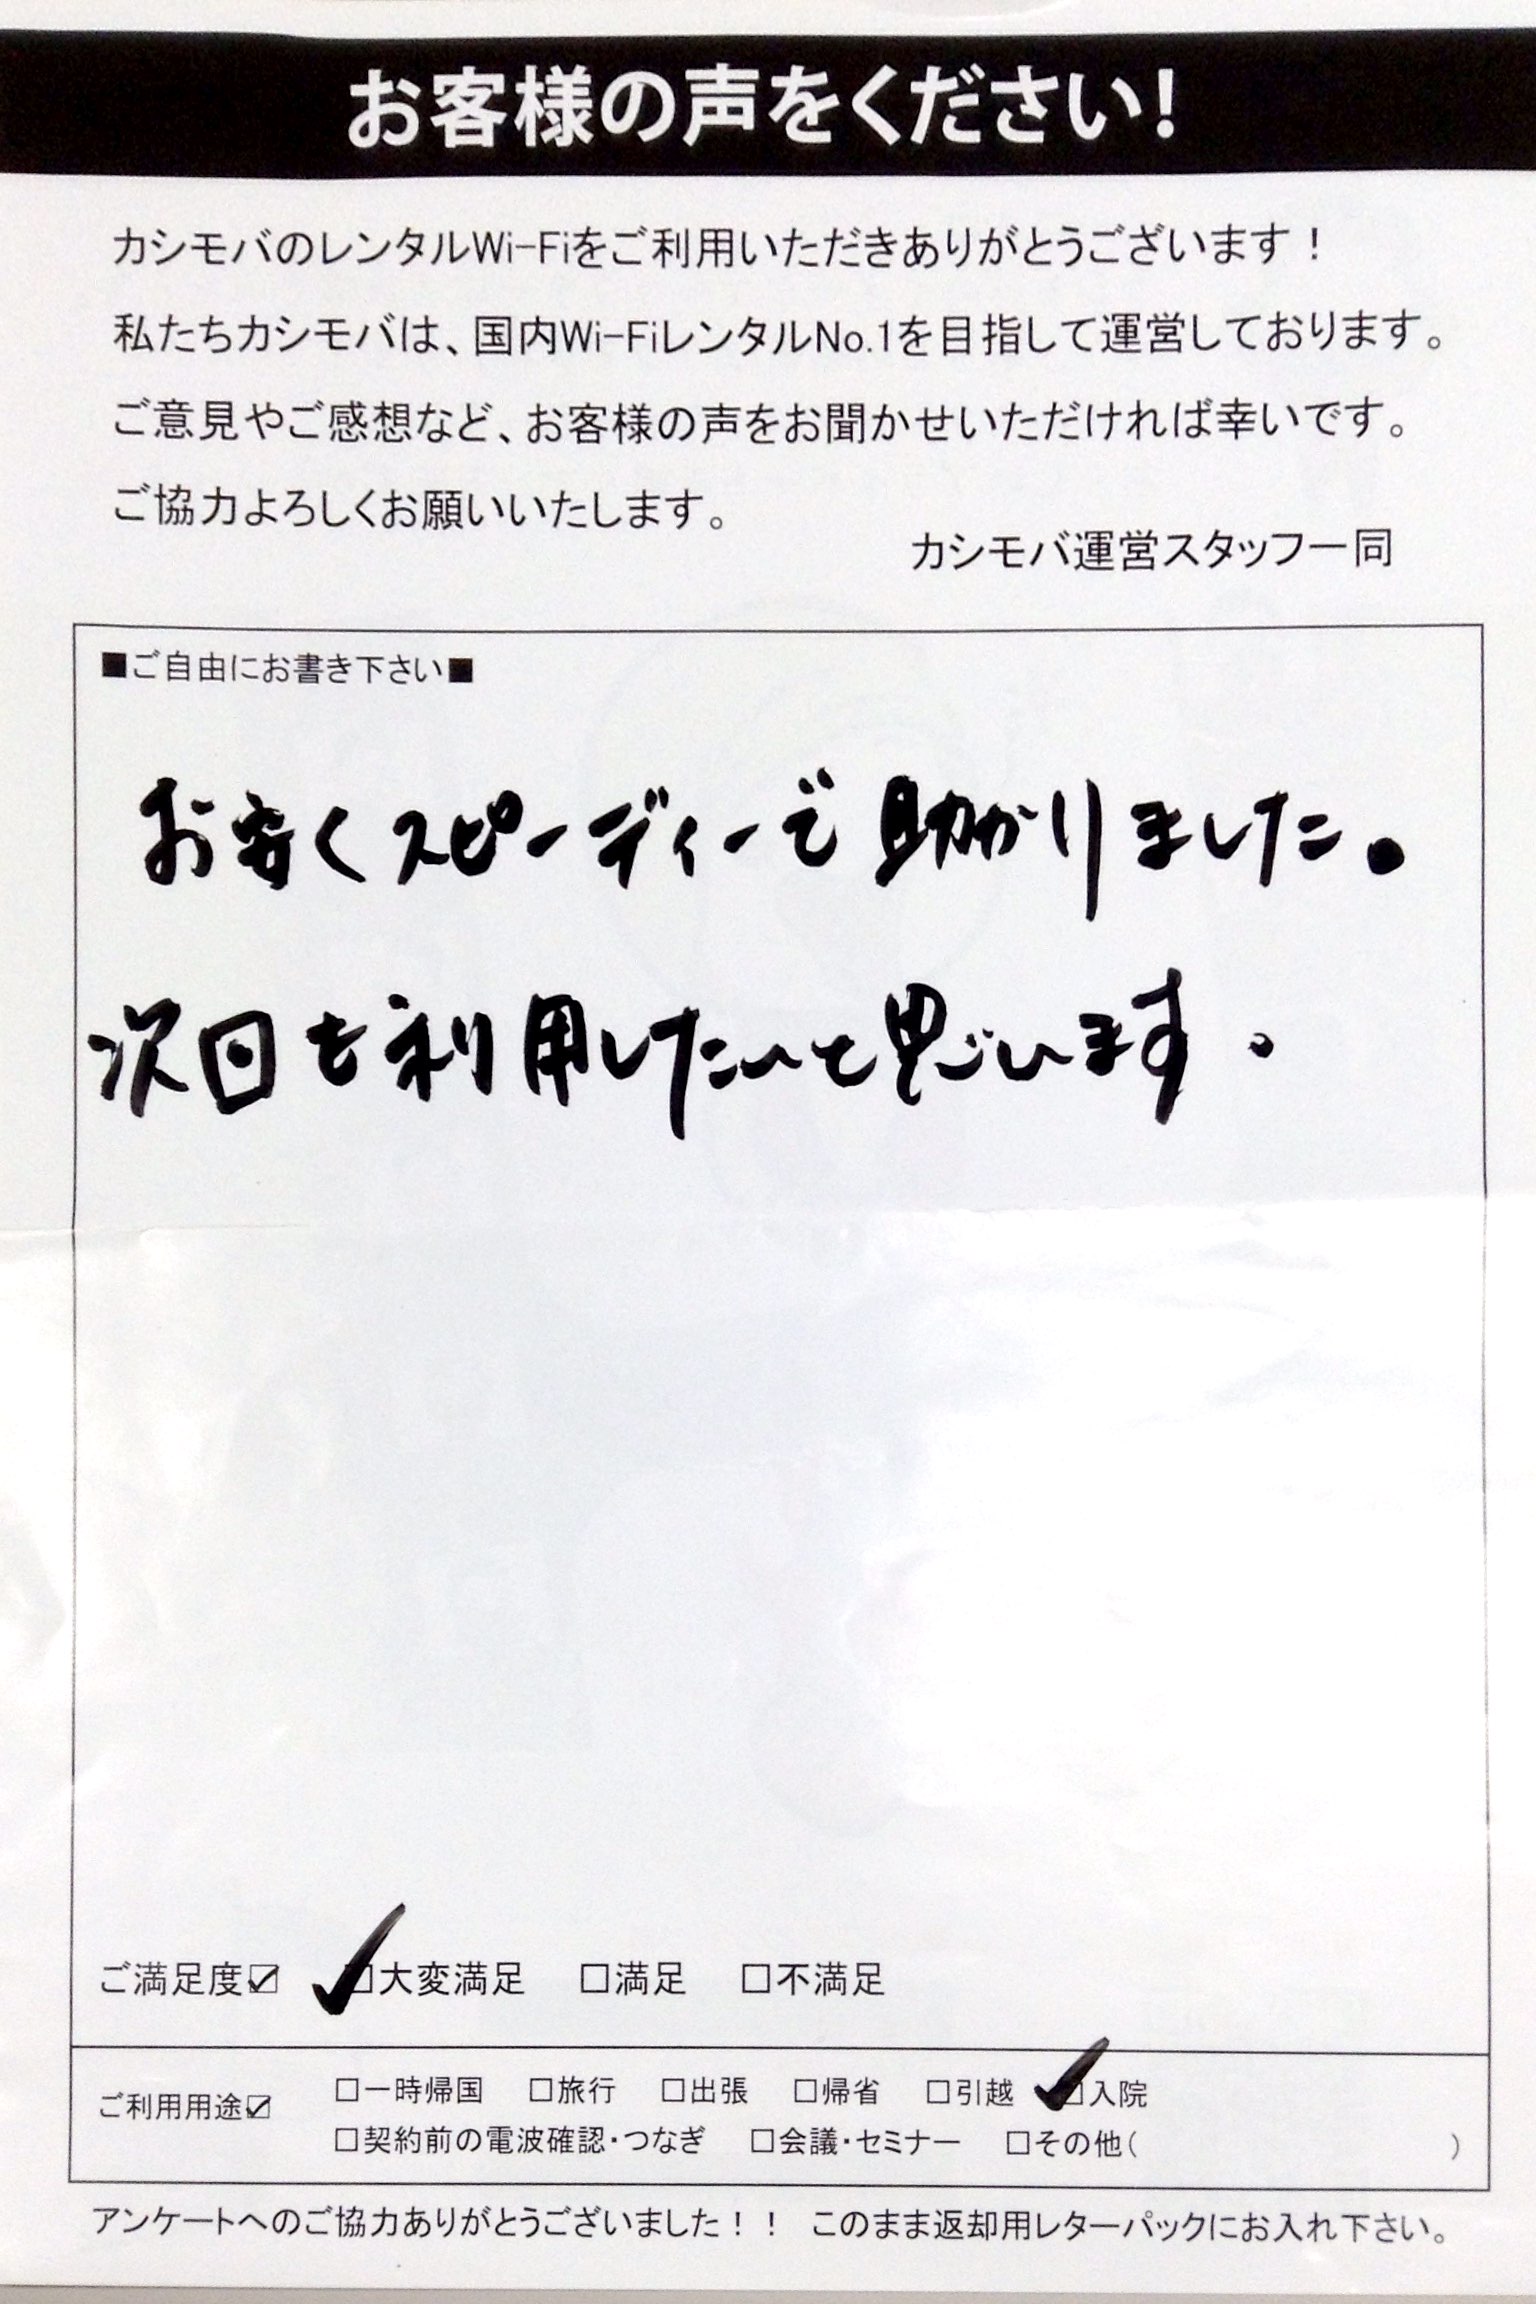 お客様の声をください!
カシモバのレンタルWi-Fiをご利用いただきありがとうございます！
私たちカシモバは、国内Wi-FiレンタルNo.1を目指して運営しております。
ご意見やご感想など、お客様の声をお聞かせいただければ幸いです。
ご協力よろしくお願いいたします。
カシモバ運営スタッフ一同
■ご自由にお書き下さい■
お安くスピーディーで助かりました。
次回も利用したいと思います。
ご満足度☑ ☑大変満足 □満足 □不満足
ご利用用途☑ □一時帰国 □旅行 □出張 □帰省 □引越 ☑入院
□契約前の電波確認・つなぎ □会議・セミナー □その他( )
アンケートへのご協力ありがとうございました！！ このまま返却用レターパックにお入れ下さい。